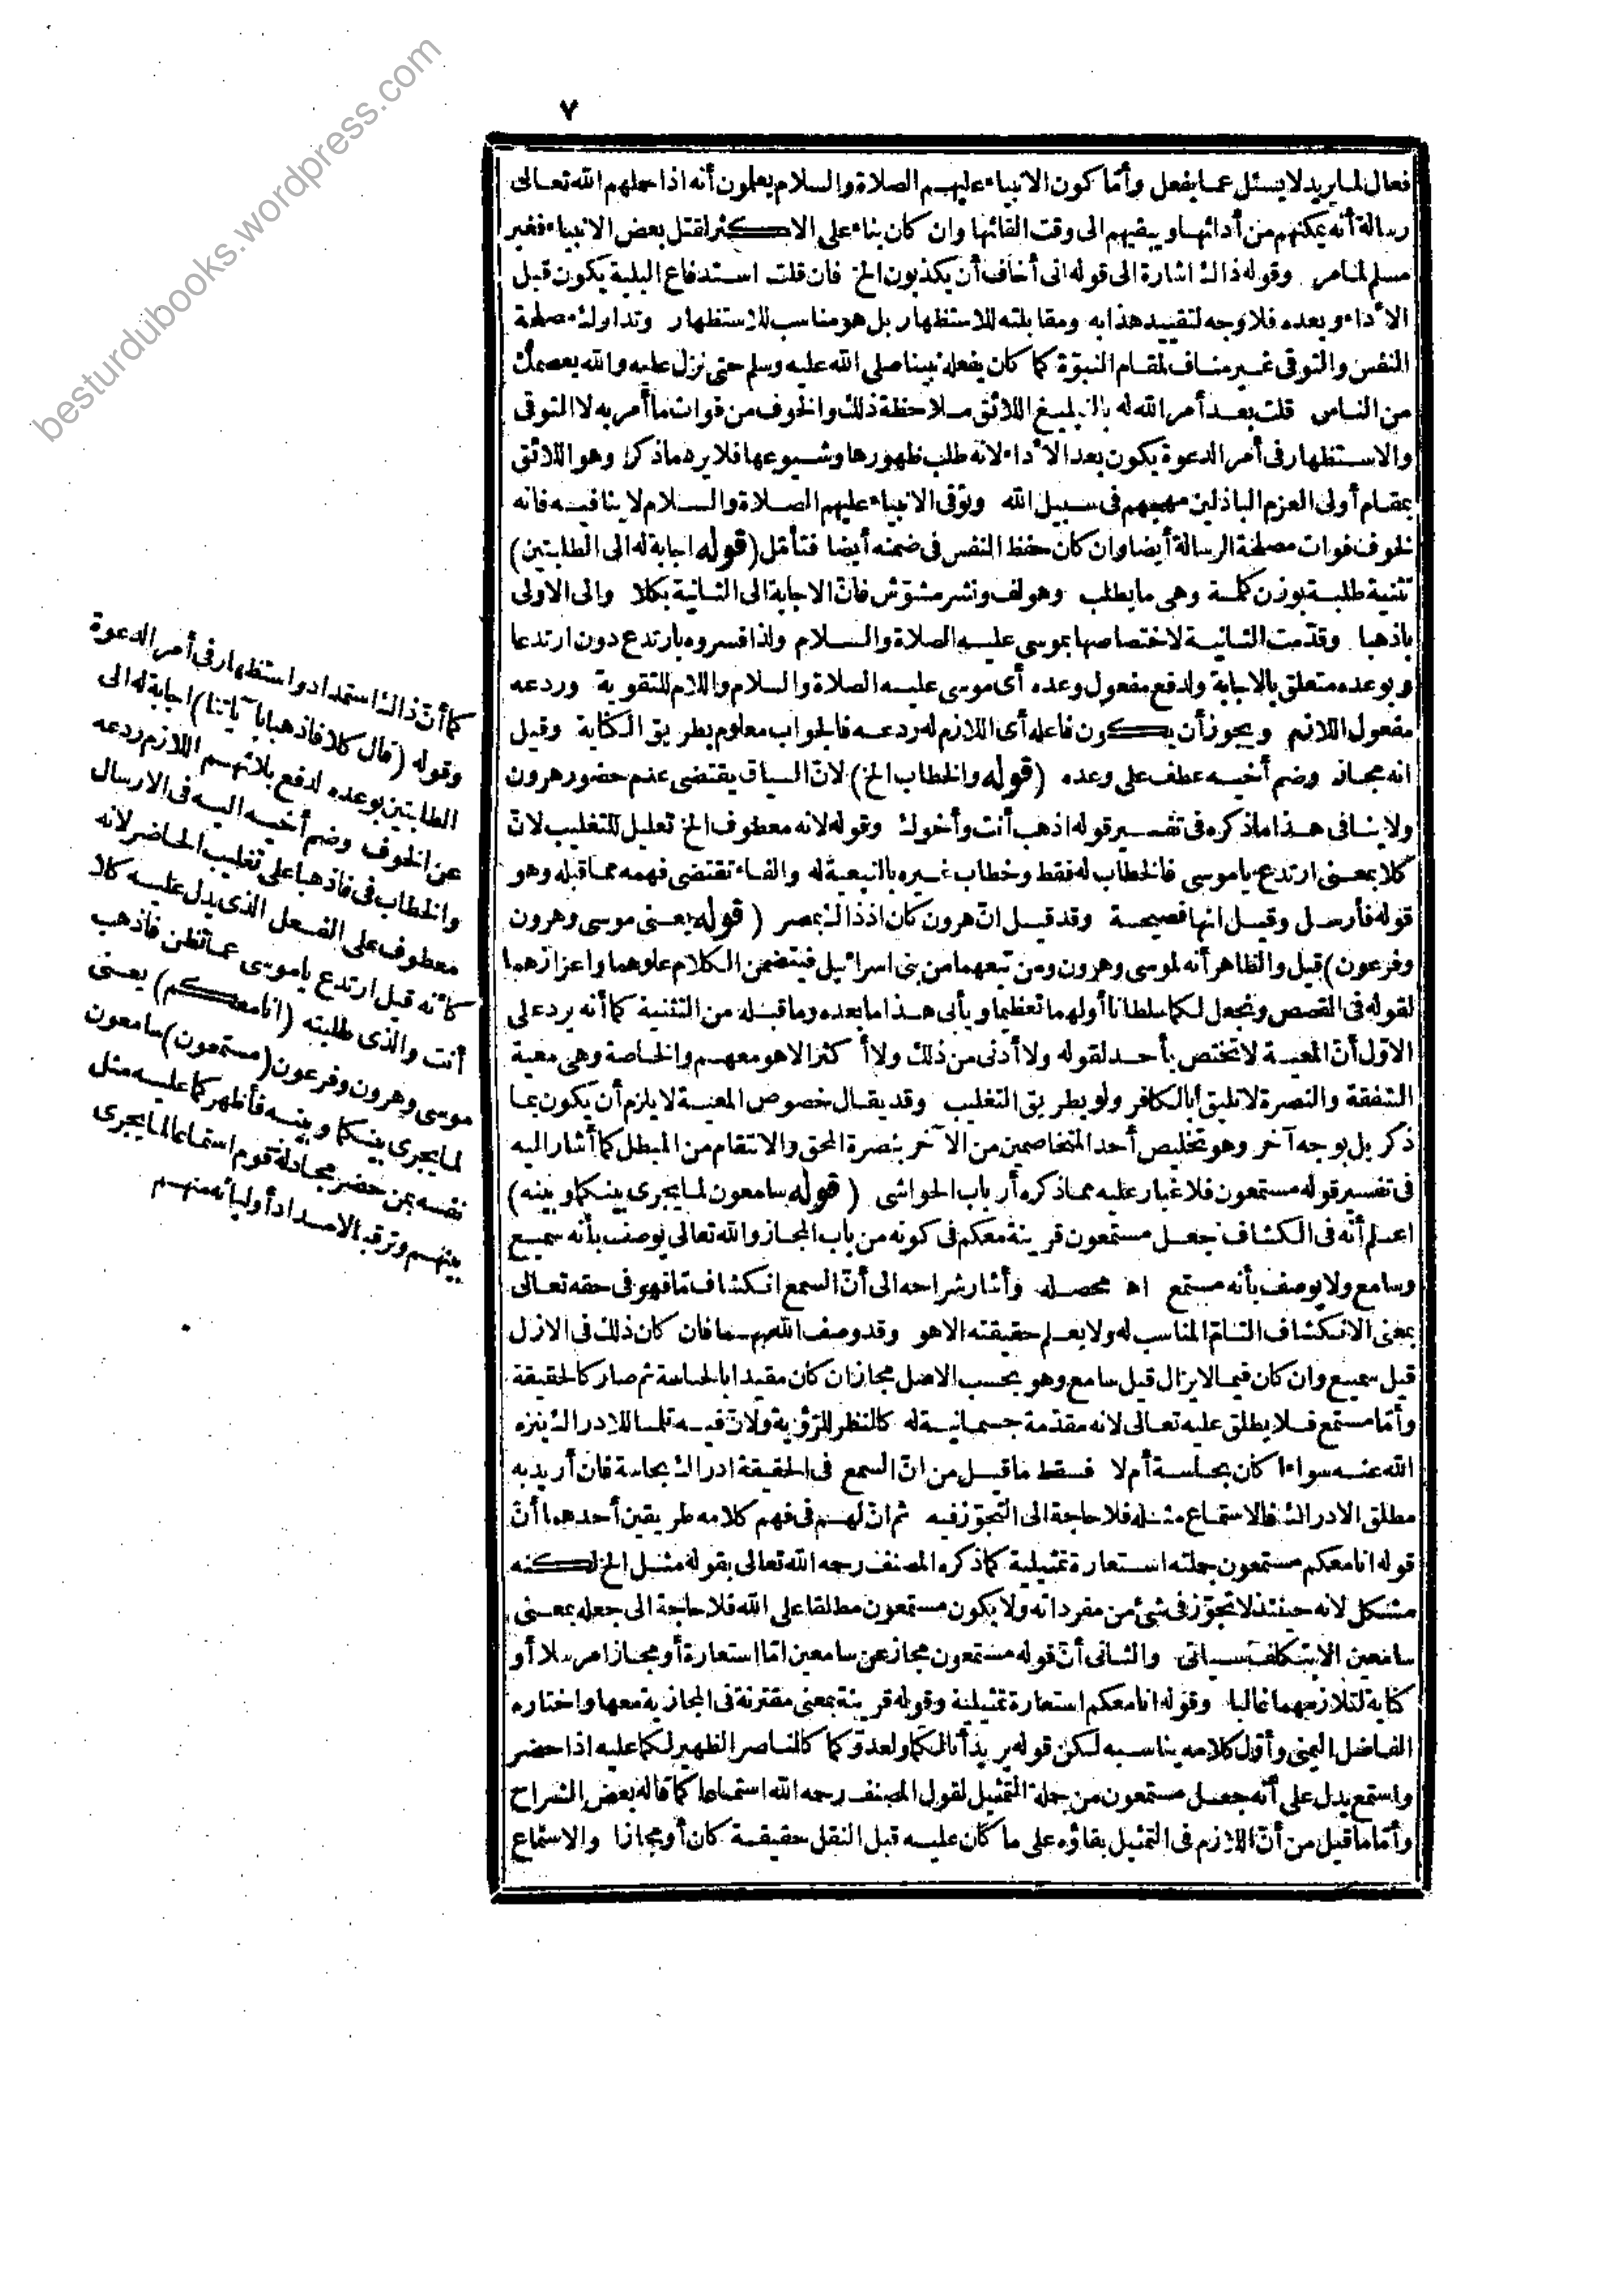 ٧
فعال لما يريد لا يسئل عما يفعل وأمّا كون الانبياء عليهم الصلاة والسلام يعلمون أنه اذا حملهم الله تعالى
رسالة أنه يمكنهم من أدائها ويبقيهم الى وقت القائها وان كان بناء على الاكثر لقتل بعض الانبياء فغير
مسلم لما مر وقوله ذاك اشارة الى قوله انى أخاف أن يكذبون الخ فان قلت استدفاع البلية يكون قبل
الأداء وبعده فلا وجه لتقييد هذا به ومقابلته للاستظهار بل هو مناسب للاستظهار وتداولك مصلحة
النفس والتوقى غير مناف لمقام النبوّة كما كان يفعله نبينا صلى الله عليه وسلم حتى نزل عليه والله يعصمك
من الناس قلت بعد أمر الله له بالتبليغ اللائق ملاحظة ذلك والخوف من فوات ما أمر به لا التوقى
والاستظهار فى أمر الدعوة يكون بعد الأداء لانه طلب ظهورها وشيوعها فلا يرد ما ذكر وهو اللائق
بمقام أولى العزم الباذلين مهجهم فى سبيل الله وتوقى الانبياء عليهم الصلاة والسلام لا ينافيه فانه
لخوف فوات مصلحة الرسالة أيضا وان كان حفظ النفس فى ضمنه أيضا فتأمّل (قوله اجابة له الى الطلبتين)
تثنية طلبة بوزن كلمة وهى ما يطلب وهو لف ونشر مشوّش فانّ الاجابة الى الثانية بكلا والى الاولى
باذهبا وقدّمت الثانية لاختصاصها بموسى عليه الصلاة والسلام ولذا فسروه بارتدع دون ارتدعا
وبوعده متعلق بالاجابة ولدفع مفعول وعده أى موسى عليه الصلاة والسلام واللام للتقوية وردعه
مفعول اللازم ويجوز أن يكون فاعله أى اللازم له ردعه فالجواب معلوم بطريق الكناية وقيل
انه مجاز وضم أخيه عطف على وعده (قوله والخطاب الخ) لانّ السياق يقتضى عدم حضور هرون
ولا ينافى هذا ما ذكره فى تفسير قوله اذهب أنت وأخوك وقوله لانه معطوف الخ تعليل للتغليب لانّ
كلا بمعنى ارتدع يا موسى فالخطاب له فقط وخطاب غيره بالتبعية له والفاء تقتضى فهمه مما قبله وهو
قوله فأرسل وقيل انها فصيحة وقد قيل انّ هرون كان اذ ذاك بمصر (قوله يعنى موسى وهرون
وفرعون) قيل والظاهر أنه لموسى وهرون ومن تبعهما من بنى اسرائيل فيتضمن الكلام علوهما واعزازهما
لقوله فى القصص ونجعل لكما سلطانا أو لهما تعظيما ويأبى هذا ما بعده وما قبله من التثنية كما أنه يرد على
الاوّل أنّ المعية لا تختص بأحد لقوله ولا أدنى من ذلك ولا أكثر الا هو معهم والخاصة وهى معية
الشفقة والنصرة لا تليق بالكافر ولو بطريق التغليب وقد يقال خصوص المعية لا يلزم أن يكون بما
ذكر بل بوجه آخر وهو تخليص أحد المتخاصمين من الآخر بنصرة المحق والانتقام من المبطل كما أشار اليه
فى تفسير قوله مستمعون فلا غبار عليه مما ذكره أرباب الحواشى (قوله سامعون لما يجرى بينكما وبينه)
اعلم أنه فى الكشاف جعل مستمعون قرينة معكم فى كونه من باب المجاز والله تعالى يوصف بأنه سميع
وسامع ولا يوصف بأنه مستمع اه محصله وأشار شراحه الى أنّ السمع انكشاف مّا فهو فى حقه تعالى
بمعنى الانكشاف التامّ المناسب له ولا يعلم حقيقته الا هو وقد وصف الله بهما فان كان ذلك فى الازل
قيل سميع وان كان فيما لا يزال قيل سامع وهو بحسب الاصل مجاز ان كان مقيدا بالحاسة ثم صار كالحقيقة
وأمّا مستمع فلا يطلق عليه تعالى لانه مقدّمة جسمانية له كالنظر للرّؤية ولانّ فيه تلمسا للادراك ينزه
الله عنه سواءا كان بحاسة أم لا فسقط ما قيل من انّ السمع فى الحقيقة ادراك بحاسة فان أريد به
مطلق الادراك فالاستماع مثله فلا حاجة الى التجوّز فيه ثم انّ لهم فى فهم كلامه طريقين أحدهما أنّ
قوله انا معكم مستمعون جملته استعارة تمثيلية كما ذكره المصنف رحمه الله تعالى بقوله مثل الخ لكنه
مشكل لانه حينئذ لا تجوّز فى شئ من مفرداته ولا يكون مستمعون مطلقا على الله فلا حاجة الى جعله بمعنى
سامعين الا بتكلف سيأتى والثانى أنّ قوله مستمعون مجاز عن سامعين امّا استعارة أو مجازا مرسلا أو
كناية لتلازمهما غالبا وقوله انا معكم استعارة تمثيلية وقوله قرينة بمعنى مقترنة فى المجازية معها واختاره
الفاضل اليمنى وأوّل كلامه يناسبه لكن قوله يريد أنا لكما ولعدوّكما كالناصر الظهير لكما عليه اذا حضر
واستمع يدل على أنه جعل مستمعون من جملة التمثيل لقول المصنف رحمه الله استماعا كما قاله بعض الشراح
وأمّا ما قيل من أنّ اللازم فى التمثيل بقاؤه على ما كان عليه قبل النقل حقيقة كان أو مجازا والاستماع
كما أنّ ذاك استمداد واستظهار فى أمر الدعوة
وقوله (قال كلا فاذهبا بآياتنا) اجابة له الى
الطلبتين بوعده لدفع بلائهم اللازم ردعه
عن الخوف وضم أخيه اليه فى الارسال
والخطاب فى فاذهبا على تغليب الحاضر لانه
معطوف على الفعل الذى يدل عليه كلا
كأنه قيل ارتدع يا موسى عما تظن فاذهب
أنت والذى طلبته (انا معكم) يعنى
موسى وهرون وفرعون (مستمعون) سامعون
لما يجرى بينكما وبينه فأظهركما عليه مثل
نفسه بمن حضر مجادلة قوم استماعا لما يجرى
بينهم وترقب الامداد أوليائه منهم
besturdubooks.wordpress.com